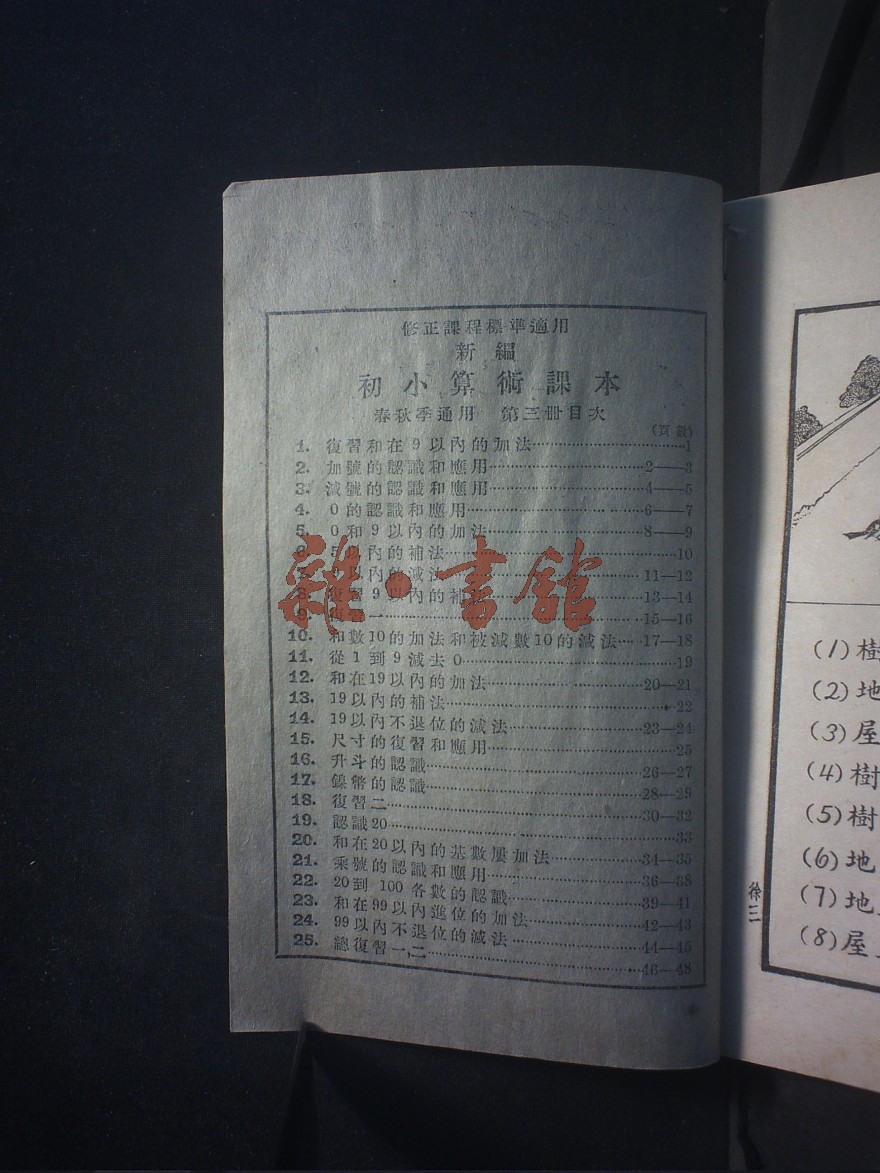 修正課程標準適用
新編
初小算術課本
春秋季通用 第三冊目次
(頁數)
1. 復習和在9以內的加法……1
2. 加號的認識和應用……2—3
3. 減號的認識和應用……4—5
4. 0的認識和應用……6—7
5. 0和9以內的加法……8—9
6. 5以內的補法……10
以內的減法……11—12
8. 復習9以內的補……13—14
9. 復習一……15—16
10. 和數10的加法和被減數10的減法……17—18
11. 從1到9減去0……19
12. 和在19以內的加法……20—21
13. 19以內的補法……22
14. 19以內不退位的減法……23—24
15. 尺寸的復習和應用……25
16. 升斗的認識……26—27
17. 鎳幣的認識……28—29
18. 復習二……30—32
19. 認識20……33
20. 和在20以內的基數屢加法……34—35
21. 乘號的認識和應用……36—38
22. 20到100各數的認識……39—41
23. 和在99以內進位的加法……42—43
24. 99以內不退位的減法……44—45
25. 總復習一,二……46—48
雜·書館
(1)樹
(2)地
(3)屋
(4)樹
(5)樹
(6)地
(7)地
(8)屋
徐三